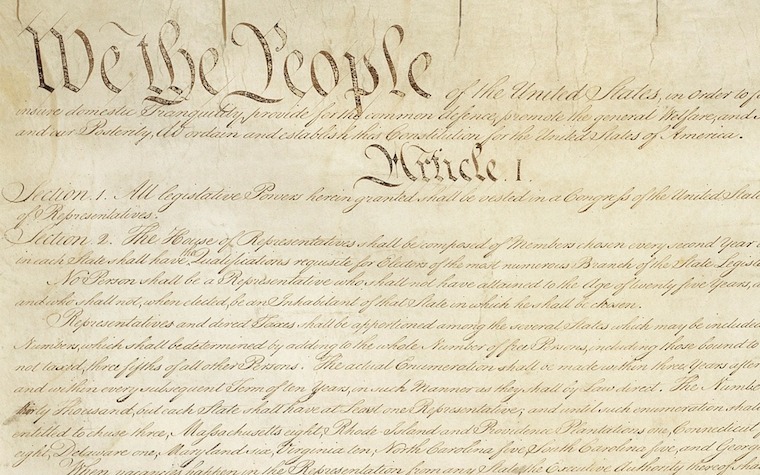 We the People of the United States, in Order to f
insure domestic Tranquility, provide for the common defence, promote the general Welfare, and
and our Posterity, do ordain and establish this Constitution for the United States of America.
Article. I.
Section. 1. All legislative Powers herein granted shall be vested in a Congress of the United State
of Representatives.
Section. 2. The House of Representatives shall be composed of Members chosen every second Year
in each State shall have the Qualifications requisite for Electors of the most numerous Branch of the State Legisl
No Person shall be a Representative who shall not have attained to the Age of twenty five Years,
and who shall not, when elected, be an Inhabitant of that State in which he shall be chosen.
Representatives and direct Taxes shall be apportioned among the several States which may be included
Numbers, which shall be determined by adding to the whole Number of free Persons, including those bound to
not taxed, three fifths of all other Persons. The actual Enumeration shall be made within three Years after
and within every subsequent Term of ten Years, in such Manner as they shall by Law direct. The Numbe
thirty Thousand, but each State shall have at Least one Representative; and until such enumeration shall
entitled to chuse three, Massachusetts eight, Rhode Island and Providence Plantations one, Connecticut
eight, Delaware one, Maryland six, Virginia ten, North Carolina five, South Carolina five, and Georg
When vacancies happen in the Representation from any State, the Executive Authority thereof sha